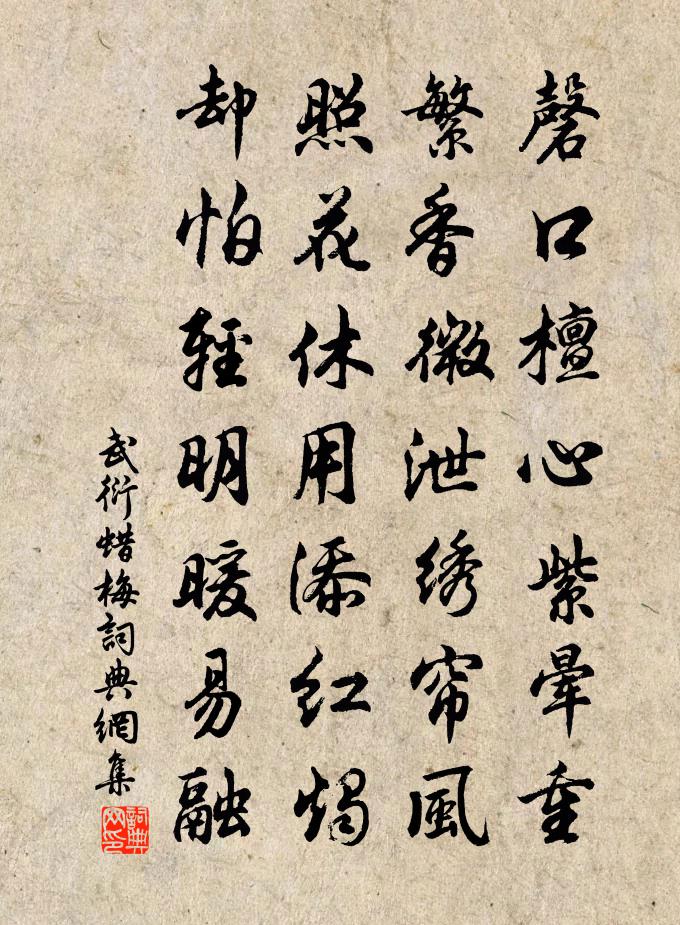 磬口檀心紫晕重
繁香微泄绣帘風
照花休用添红燭
却怕輕明暖易融
武衍蜡梅詞典網集
詞典网印